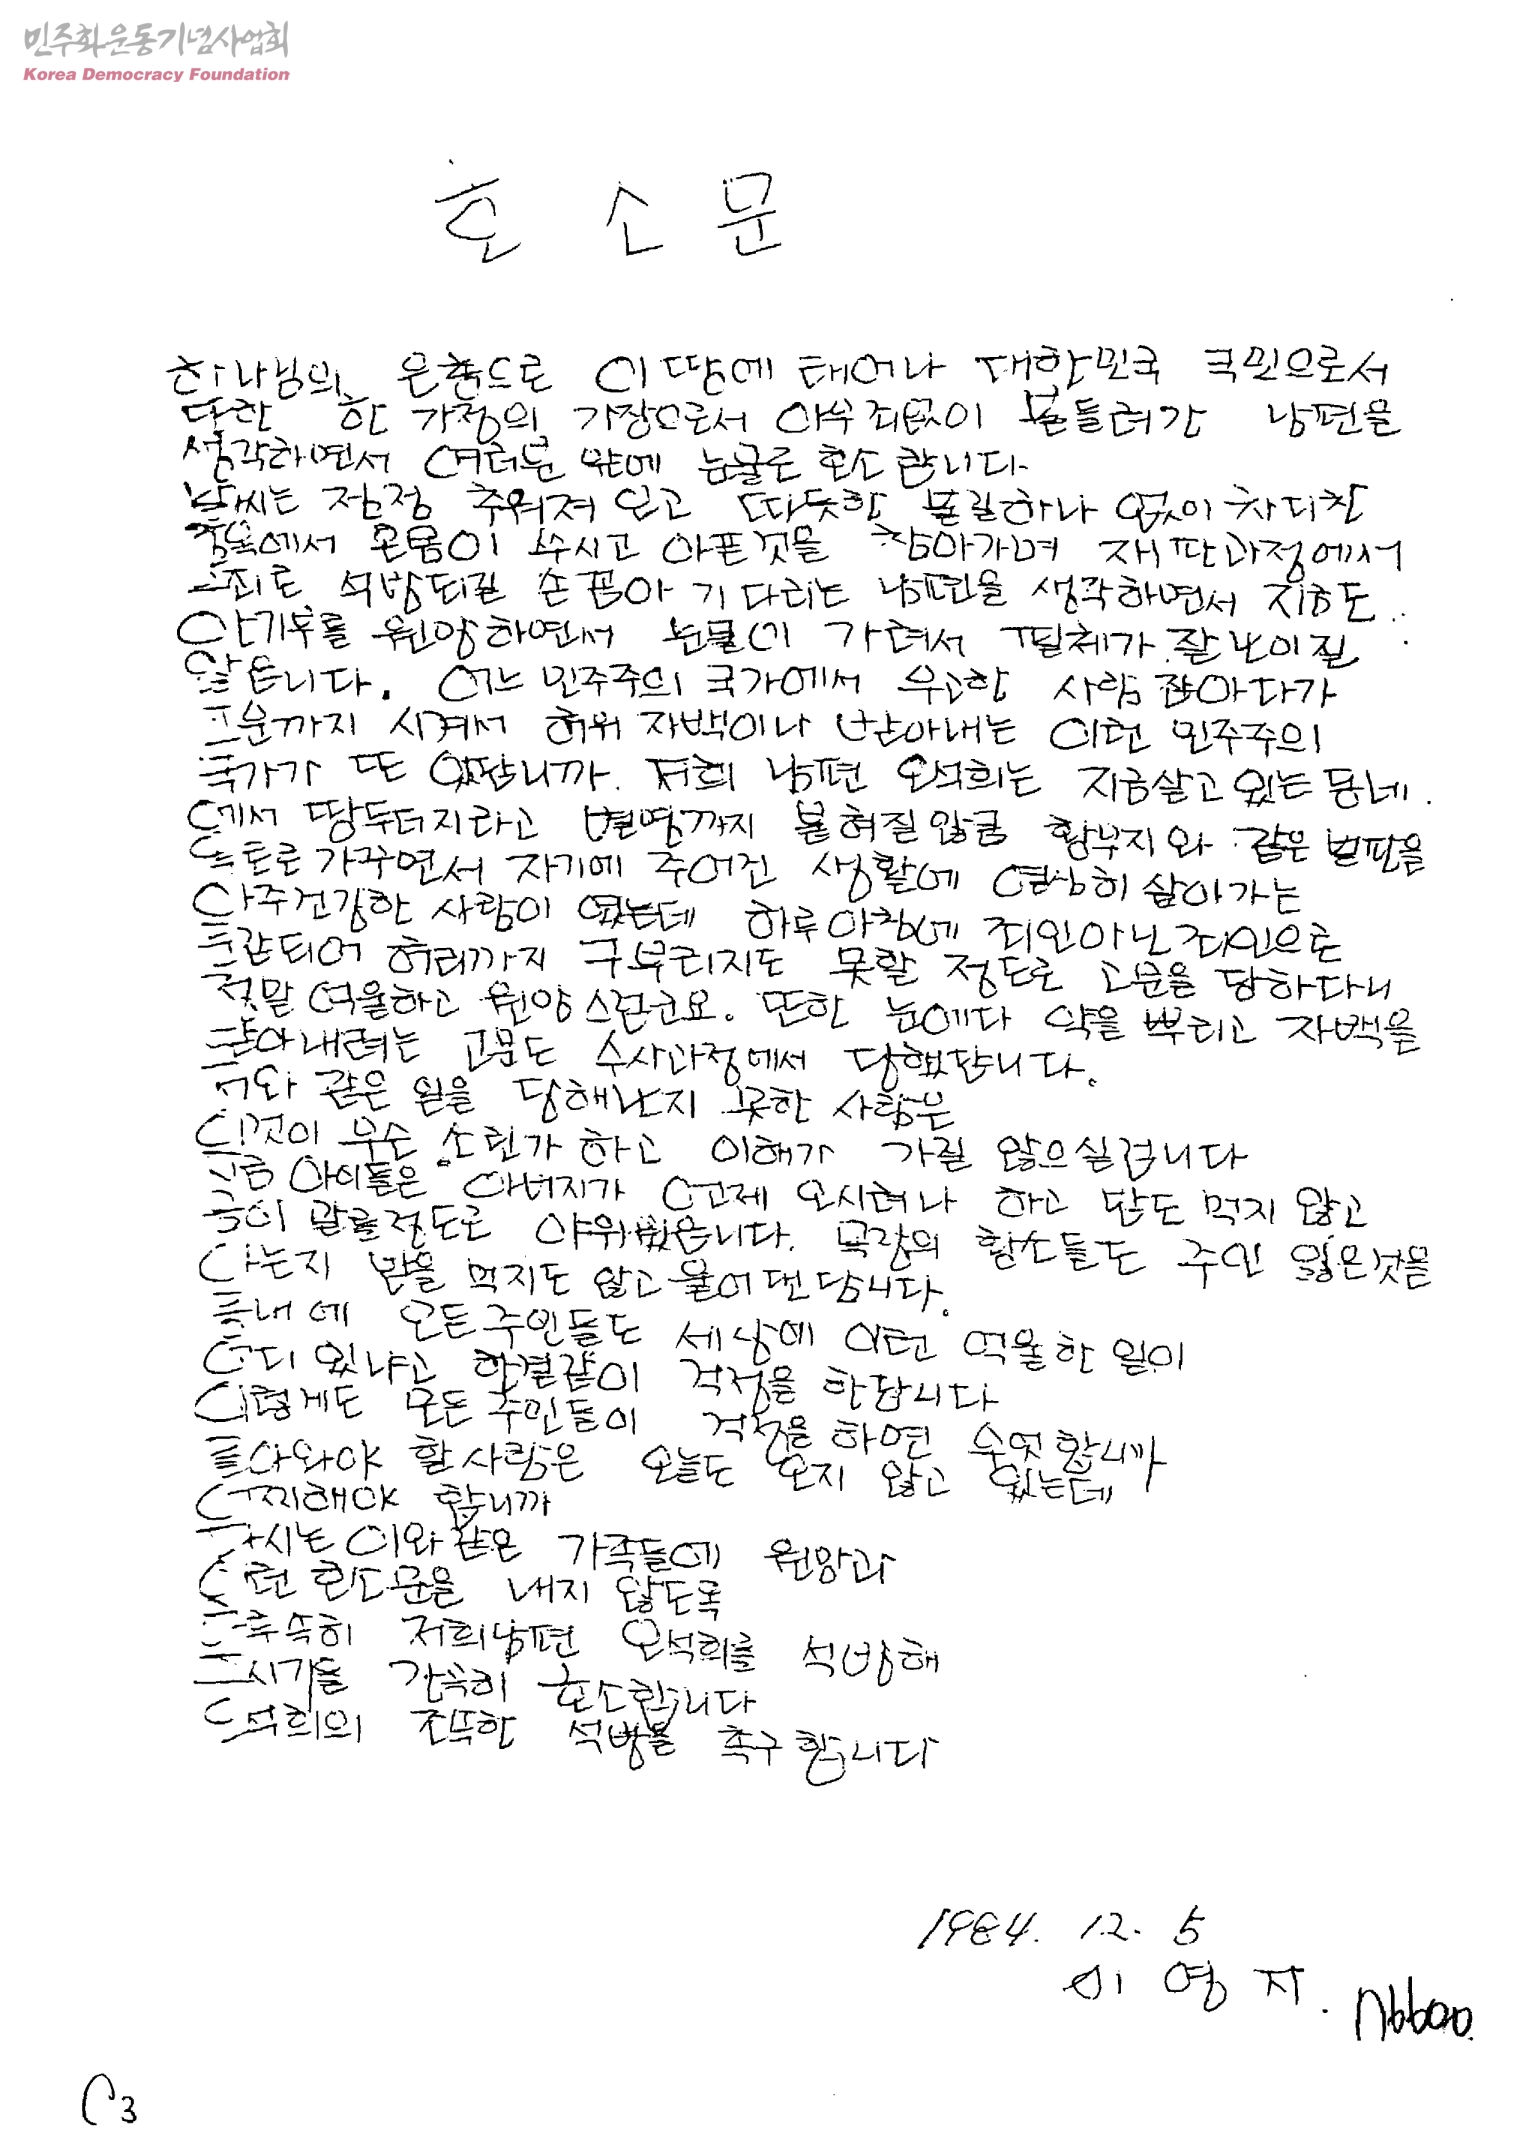 민주화운동기념사업회
Korea Democracy Foundation
호 소 문
하나님의 은총으로 이 땅에 태어나 대한민국 국민으로서
단란한 가정의 가장으로서 아무 죄없이 붙들려간 남편을
생각하면서 여러분 앞에 눈물로 호소 합니다.
날씨는 점점 추워져 오고 따뜻한 불길하나 없이 차디찬
에서 온몸이 쑤시고 아픈것을 참아가며 재판과정에서
무죄로 석방되길 손꼽아 기다리는 남편을 생각하면서 지하도
안기부를 원망하면서 눈물이 가려서 필체가 잘 보이질
않읍니다. 어느 민주주의 국가에서 무고한 사람 잡아다가
고문까지 시켜서 허위 자백이나 받아내는 이런 민주주의
국가가 또 있답니까. 저희 남편 오석희는 지금살고 있는 동네
에서 땅두더지라고 별명까지 붙혀질 않큼 황무지와 같은 벌판을
옥토로 가꾸면서 자기에 주어진 생활에 열심히 살아가는
아주건강한 사람이 였는데 하루아침에 죄인아닌 죄인으로
되어 허리까지 구부리지도 못할 정도로 고문을 당하다니
정말 억울하고 원망스럽군요. 또한 눈에다 약을 뿌리고 자백을
받아내려는 고문도 수사과정에서 당했답니다.
저와 같은 일을 당해보지 못한 사람은
이것이 무슨 소린가 하고 이해가 가질 않으실겁니다
지금 아이들은 아버지가 언제 오시려나 하고 밥도 먹지 않고
정도로 야위었읍니다. 목장의 황소들도 주인 잃은것을
아는지 밥을 먹지도 않고 울어 댄답니다.
동내에 모든주민들도 세상에 이런 억울한 일이
어디 있냐고 한결같이 걱정을 한답니다
이렇게도 모든 주민들이 걱정을 하면 무엇합니까
돌아와야 할 사람은 오늘도 오지 않고 있는데
어찌해야 합니까
다시는 이와같은 가족들에 원망과
이런 호소문을 내지 않도록
조속히 저희남편 오석희를 석방해
주시기를 간곡히 호소합니다
오석희의 조속한 석방을 촉구합니다
1984. 12. 5
이 영 자.
C3